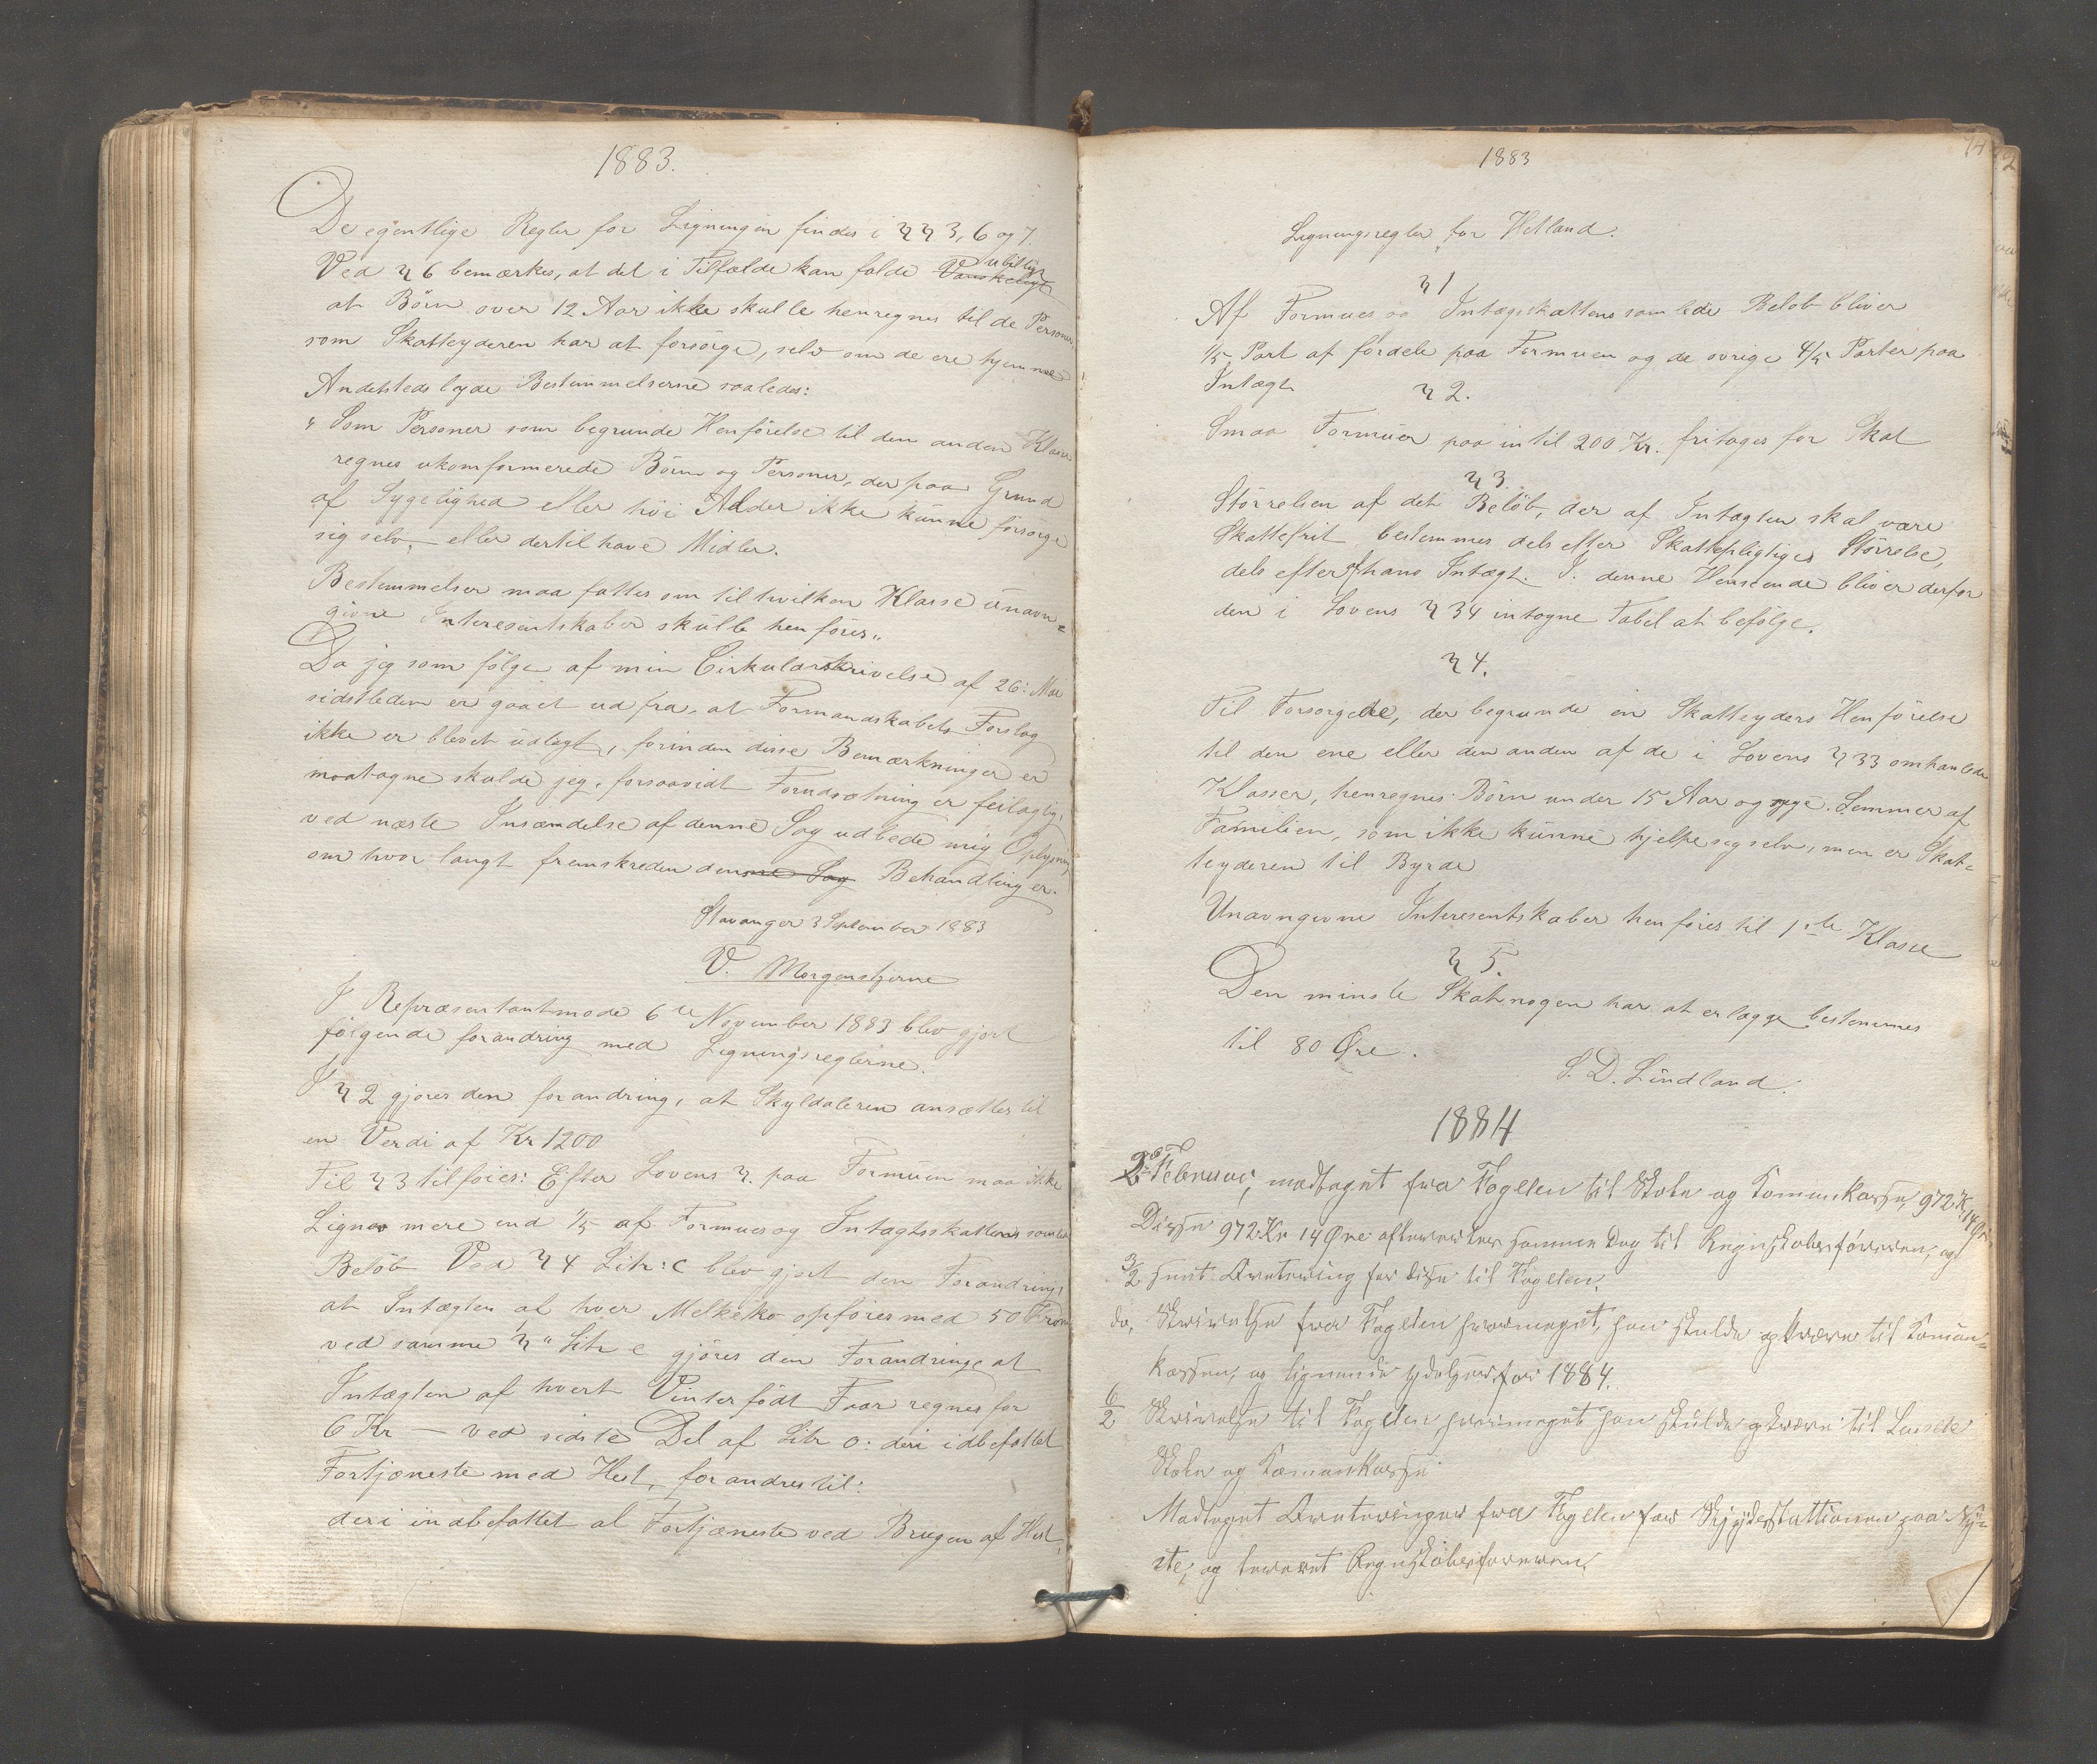 1883.
De egentlige Regler for Ligningen findes i §§ 3, 6 og 7.
Ved § 6 bemærkes, at det i Tilfælde kan falde Vanskeligt ubilligt
at Börn over 12 Aar ikke skulles henregnes til de Personer,
som Skatteyderen har at forsörge, selv om de ere hjemme
Andetsteds lyde Bestemmelserne saaledes:
"Som Personer som begrunde Henförelse til den anden Klasse
regnes ukomformerede Börn og Personer, der paa Grund
af Sygelighed eller höi Alder ikke kunne forsörge
sig selv, eller dertil have Midler.
Bestemmelser maa fattes om til hvilken Klasse unavn=
givne Interesentskaber skulle henföres"
Da jeg som fölge af min Cirkulærskrivelse af 26: Mai
sidstleden er gaaet ud fra, at Formandskabets Forslag
ikke er blevet udlagt, forinden disse Bemærkninger er
modtagne skulde jeg, forsaavidt Forudsætning er feilagtig,
ved næste Insændelse af denne Sag udbede mig Oplysning
om hvor langt fremskreden denne Sag Behandling er.
Stavanger 3 September 1883
V. Morgenstjerne
I Repræsentantmøde 6te November 1883 blev gjort
følgende forandring med Ligningsreglerne.
I § 2 gjøres den forandring, at Skyldaleren ansættes til
en Verdi af Kr 1200
Til § 3 tilføies: Efter Lovens §. paa Formuen maa ikke
Lignes mere end 1/5 af Formues og Intægtsskattens samlede
Belöb Ved § 4 Litr: c blev gjort den Forandring,
at Intægten af hver Melkeko opføres med 50 Kroner
ved samme § " Litr e gjöres den Forandringe at
Intægten af hvert Vinterfödt Faar regnes for
6 Kr — ved sidste Del af Litr o: deri idbefattet
Fortjæneste med Hest, forandres til:
deri indbefattet al Fortjæneste ved Brugen af Hest,
1883
Ligningsregler for Hetland.
§ 1
Af Formues og Intægsskattens samlede Belöb bliver
1/5 Part af fördele paa Formuen og de övrige 4/5 Parter paa
Intægt
§ 2.
Smaa Formuer paa intil 200 Kr. fritages for Skat
§ 3.
Störrelsen af det Belöb, der af Intægten skal være
Skattefrit bestemmes dels efter Skattepligtiges Störrelse,
dels efter hans Intægt. I denne Henseende bliver derfor
den i Lovens § 34 intagne Tabel at befölge.
§ 4.
Til Forsorgede, der begrunde en Skatteyders Henförelse
til den ene eller den anden af de i Lovens § 33 omhanlede
Klasser, henregnes Börn under 15 Aar og syge Lemmer af
Familien, som ikke kunne hjelpe seg selv, men er Skat=
teyderen til Byrde
Unavngivne Interesentskaber henföres til 1ste Klasse
§ 5.
Den minste Skat nogen har at erlægge bestemmes
til 80 Øre.
S. D. Lindland.
1884
2de Februar, modtaget fra Fogden til Skole og Komunkassen, 972 Kr 14 Øre
Disse 972 Kr 14 Øre afleveret samme Dag til Regnskabsføreren, og
3/2 sent Kvitering for disse til Fogden.
do, Skrivelse fra Fogden hvormeget han skulde opkræve til Komun=
kassen, og lignende ydelser for 1884.
6/2 Skrivelse til Fogden hvormeget han skulde opkræve til
Skole og Komunkassen.
Modtaget Kviteringer fra Fogden for Skydsstationen paa
og leveret Regnskabsføreren.